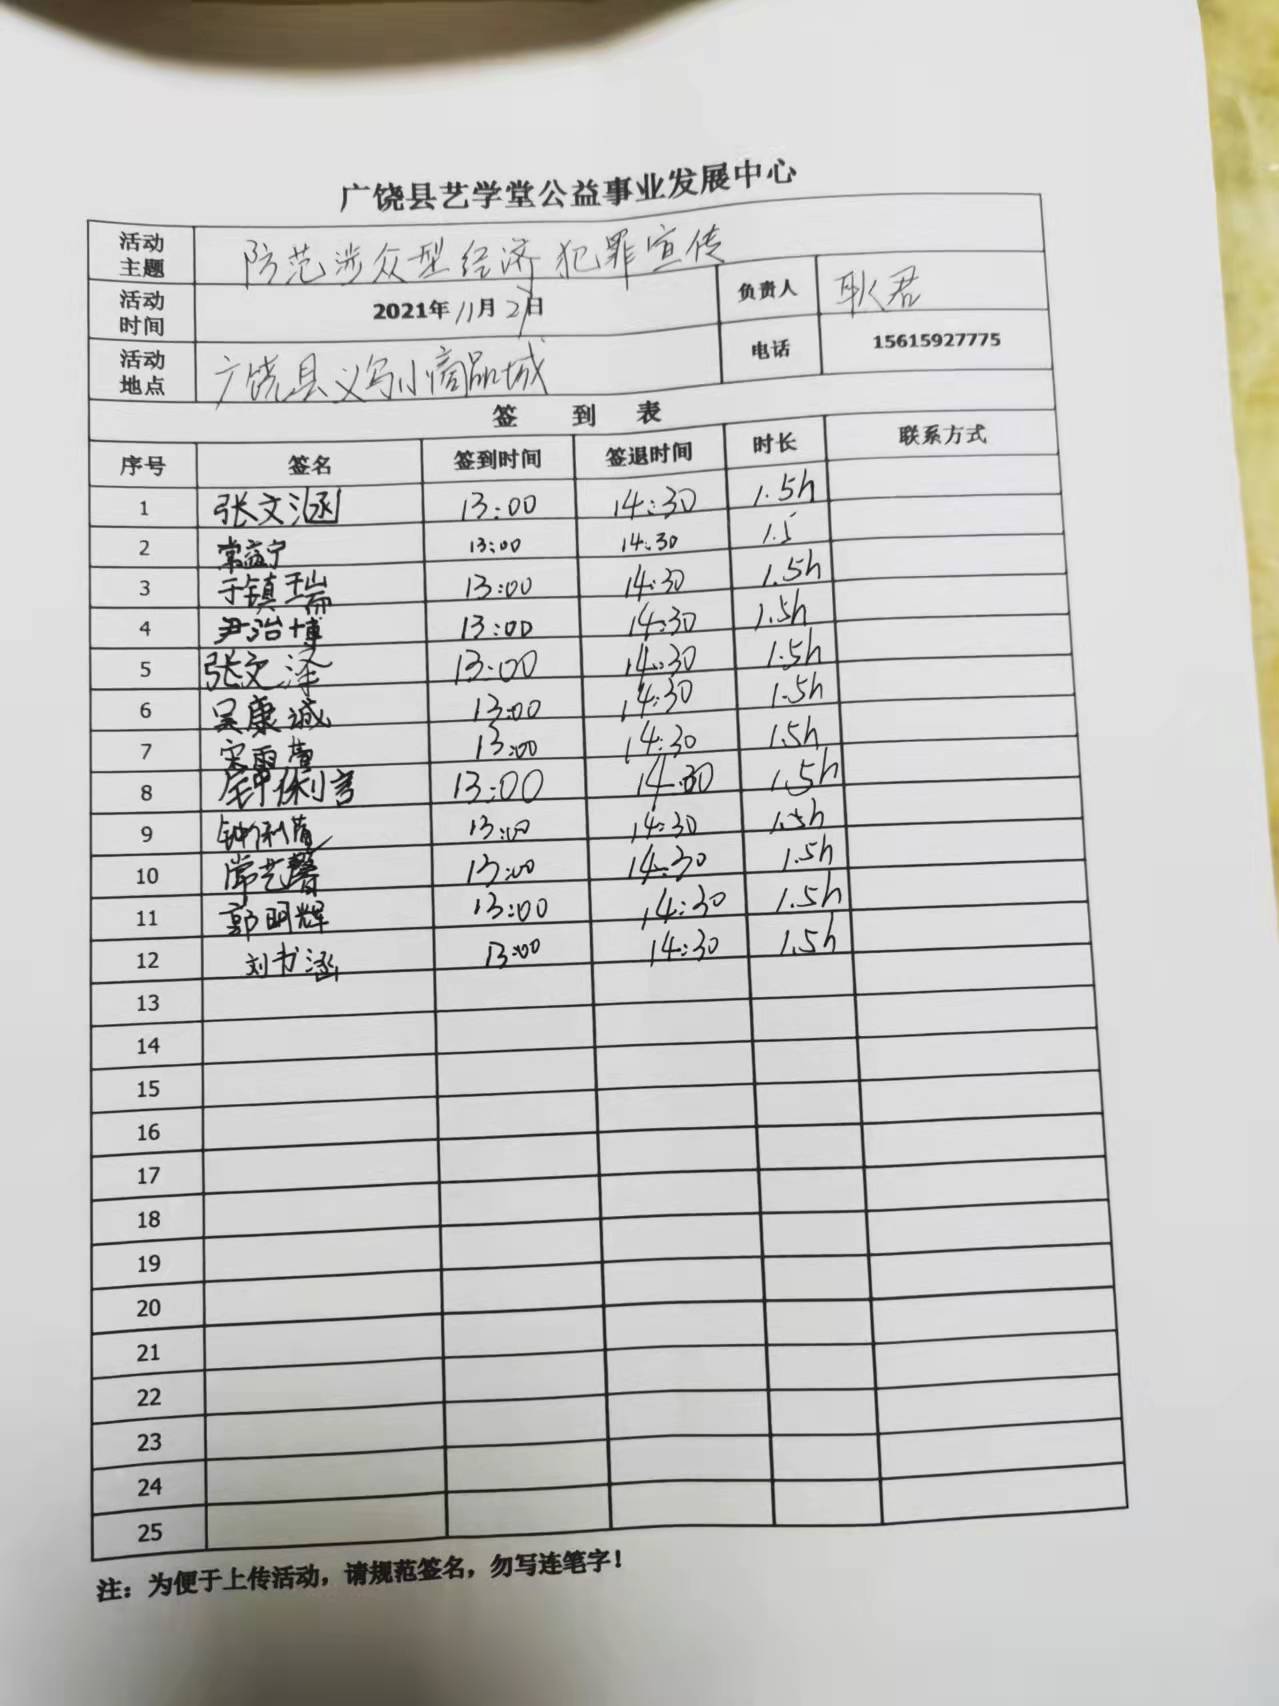 广饶县艺学堂公益事业发展中心
活动主题 防范涉众型经济犯罪宣传
活动时间 2021年11月21日 负责人 耿君
活动地点 广饶县义乌小商品城 电话 15615927775
签 到 表
序号 签名 签到时间 签退时间 时长 联系方式
1 张文涵 13:00 14:30 1.5h
2 常益宁 13:00 14:30 1.5
3 于镇瑞 13:00 14:30 1.5h
4 尹治博 13:00 14:30 1.5h
5 张文泽 13:00 14:30 1.5h
6 吴康诚 13:00 14:30 1.5h
7 宋雨萱 13:00 14:30 1.5h
8 13:00 14:30 1.5h
9 13:00 14:30 1.5h
10 常艺馨 13:00 14:30 1.5h
11 郭明辉 13:00 14:30 1.5h
12 刘书涵 13:00 14:30 1.5h
13
14
15
16
17
18
19
20
21
22
23
24
25
注：为便于上传活动，请规范签名，勿写连笔字！